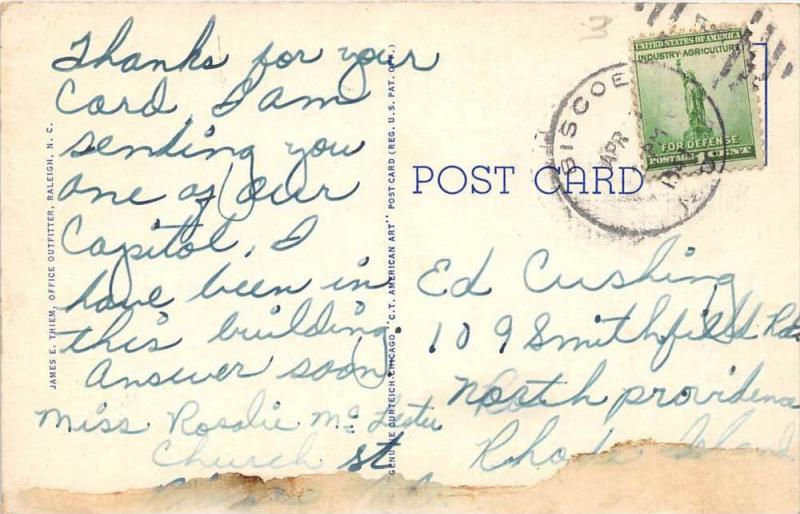 Thanks for your
Card, I am
sending you
one of our
Capitol, I
have been in
this building.
Answer soon,
Miss Rosalie
Church st
JAMES E. THIEM, OFFICE OUTFITTER, RALEIGH, N. C.
GENUINE CURTEICH-CHICAGO "C.T. AMERICAN ART" POST CARD (REG. U.S. PAT. OFF.)
POST CARD
BISCOE
APR
UNITED STATES OF AMERICA
INDUSTRY-AGRICULTURE
FOR DEFENSE
POSTAGE 1 CENT
Ed Cushing
109 Smithfield Rd
North providence
Rhode Island